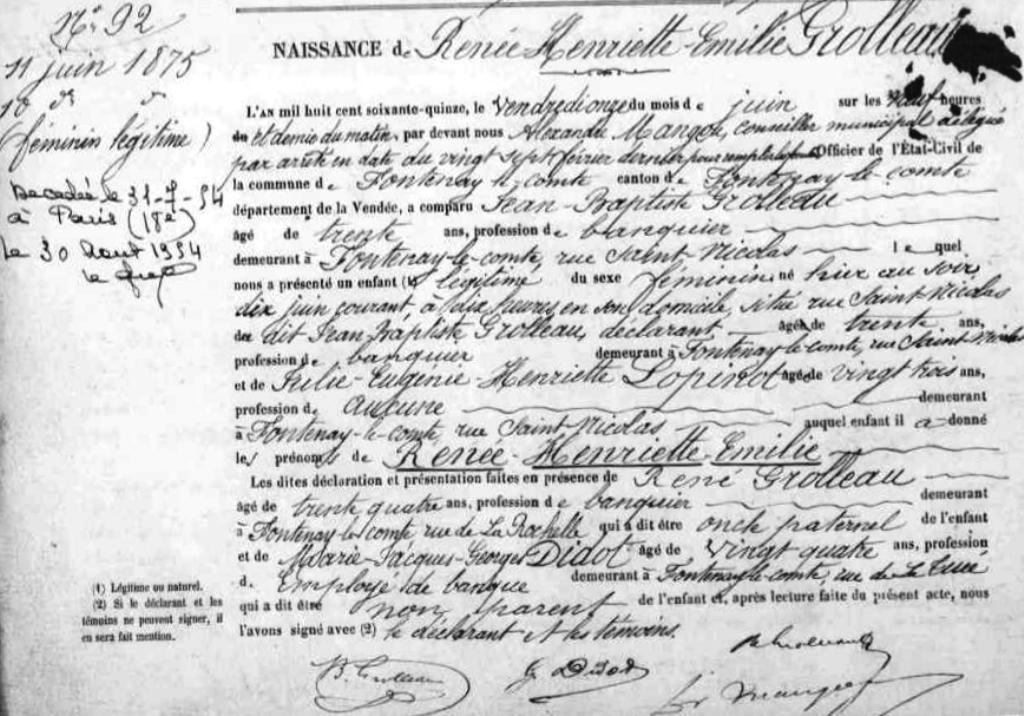 N° 92
11 juin 1875
10 d°
(féminin légitime)
Décédée le 31-7-54
à Paris (18e)
le 30 Aout 1954
NAISSANCE de Renée Henriette Emilie Grolleau
L'AN mil huit cent soixante-quinze, le Vendredi onze du mois de juin sur les neuf heures
du et demie du matin, par devant nous Alexandre Mangou, conseiller municipal délégué
par arrêté en date du vingt sept février dernier pour remplir les Officier de l'État-Civil de
la commune de Fontenay-le-comte canton de Fontenay-le-comte
département de la Vendée, a comparu Jean-Baptiste Grolleau
âgé de trente ans, profession de banquier
demeurant à Fontenay-le-comte, rue Saint-Nicolas lequel
nous a présenté un enfant (1) légitime du sexe féminin, né hier au soir
dix juin courant, à dix heures, en son domicile, situé rue Saint-Nicolas
du dit Jean Baptiste Grolleau, déclarant âgé de trente ans,
profession de banquier demeurant à Fontenay-le-comte, rue Saint Nicolas
et de Julie-Eugénie-Henriette Lopinot âgée de vingt trois ans,
profession d. aucune demeurant
à Fontenay-le-comte, rue Saint-Nicolas auquel enfant il a donné
les prénoms de Renée-Henriette-Emilie
Les dites déclaration et présentation faites en présence de René Grolleau
âgé de trente quatre ans, profession de banquier demeurant
à Fontenay-le-comte, rue de La Rochelle qui a dit être oncle paternel de l'enfant
et de Marie-Jacques-Georges Didot âgé de vingt quatre ans, profession
d. Employé de banque demeurant à Fontenay-le-comte, rue de
qui a dit être non parent de l'enfant et, après lecture faite du présent acte, nous
l'avons signé avec (2) le déclarant et les témoins.
(1) Légitime ou naturel.
(2) Si le déclarant et les
témoins ne peuvent signer, il
en sera fait mention.
R Grolleau
B. Grolleau G Didot